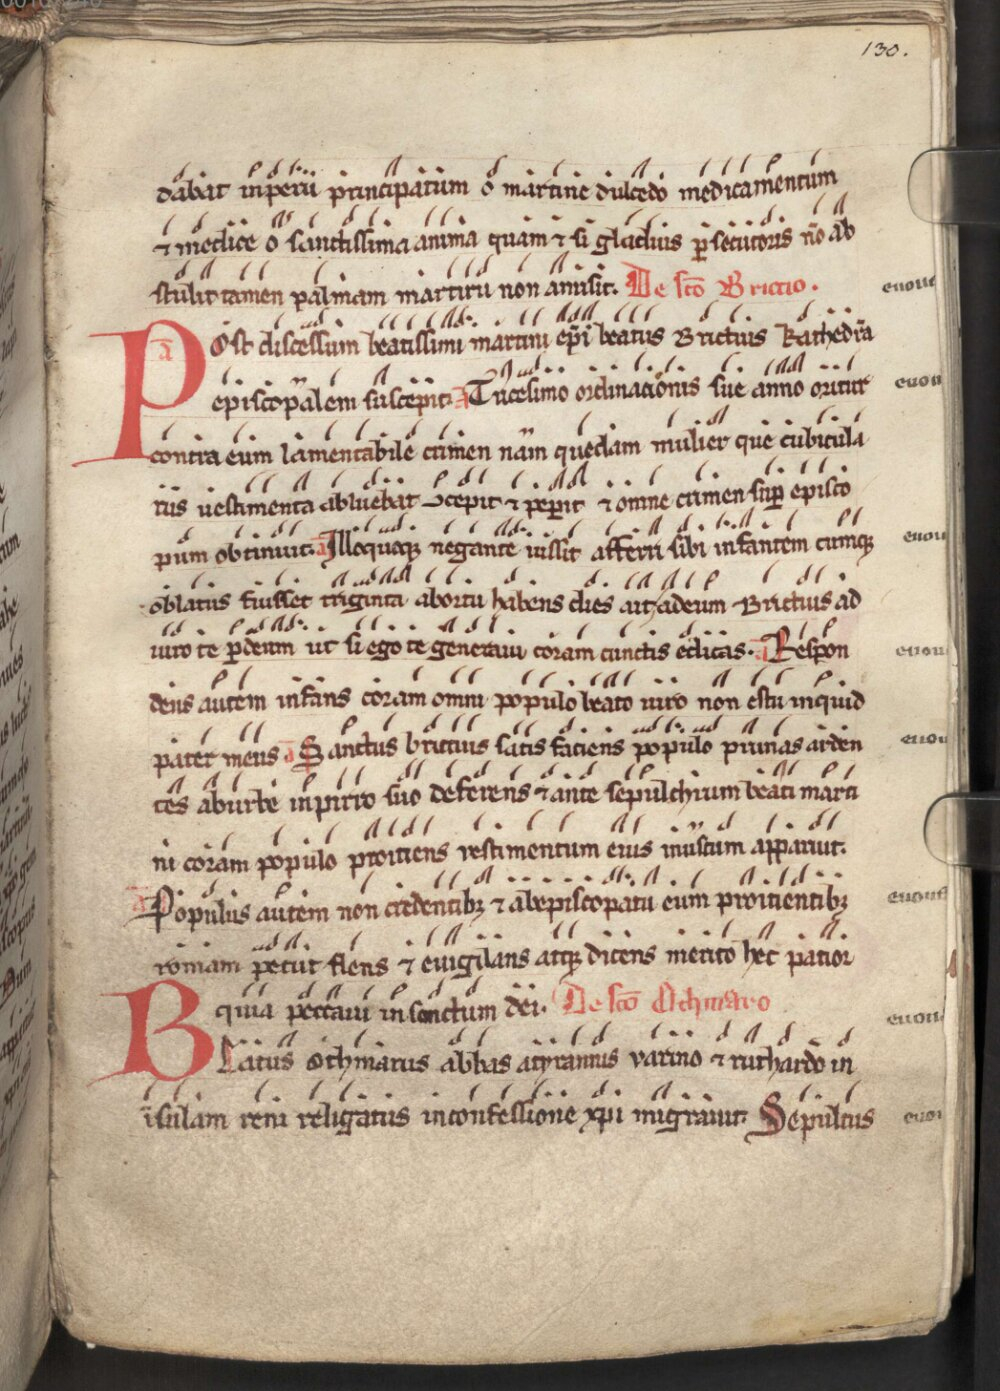 130.
dabat inperii principatum o martine dulcedo medicamentum
⁊ medice o sanctissima anima quam ⁊ si gladius p̲secutoris nō ab
stulit tamen palmam martirii non amisit. De sc̄o Brictio. euouae
a Post discessum beatissimi martini ep̄i beatus Brictius kathedrā
episcopalem suscepit. a Tricesimo ordinationis sue anno oritur
contra eum lamentabile crimen nam quedam mulier que cubicula
riis uestimenta abluebat ↄcepit ⁊ pep̲it ⁊ omne crimen sup̲ episco
pum obtinuit. a Illoquoqꝫ negante iussit afferri sibi infantem cumqꝫ
oblatus fuisset triginta abortu habens dies ait adeum Brictius ad
iuro te p̲ deum ut si ego te generaui coram cunctis edicas. a Respon
dens autem infans coram omni populo beato uiro non es tu inquid
pater meus a Sanctus brictius satis faciens populo prunas arden
tes aburbe inpirro suo deferens ⁊ ante sepulchrum beati marti
ni coram populo proitiens vestimentum eius inustum apparuit.
a Populus autem non credentibꝫ ⁊ abepiscopatu eum proitientibꝫ
romam petiit flens ⁊ euigilans atqꝫ dicens merito hec patior
quia peccaui in sanctum dei. De sc̄o Othmaro
Beatus Othmarus abbas atyrannis varino ⁊ ruthardo in
īsulam reni religatus inconfessione xp̄i migrauit. Sepultus